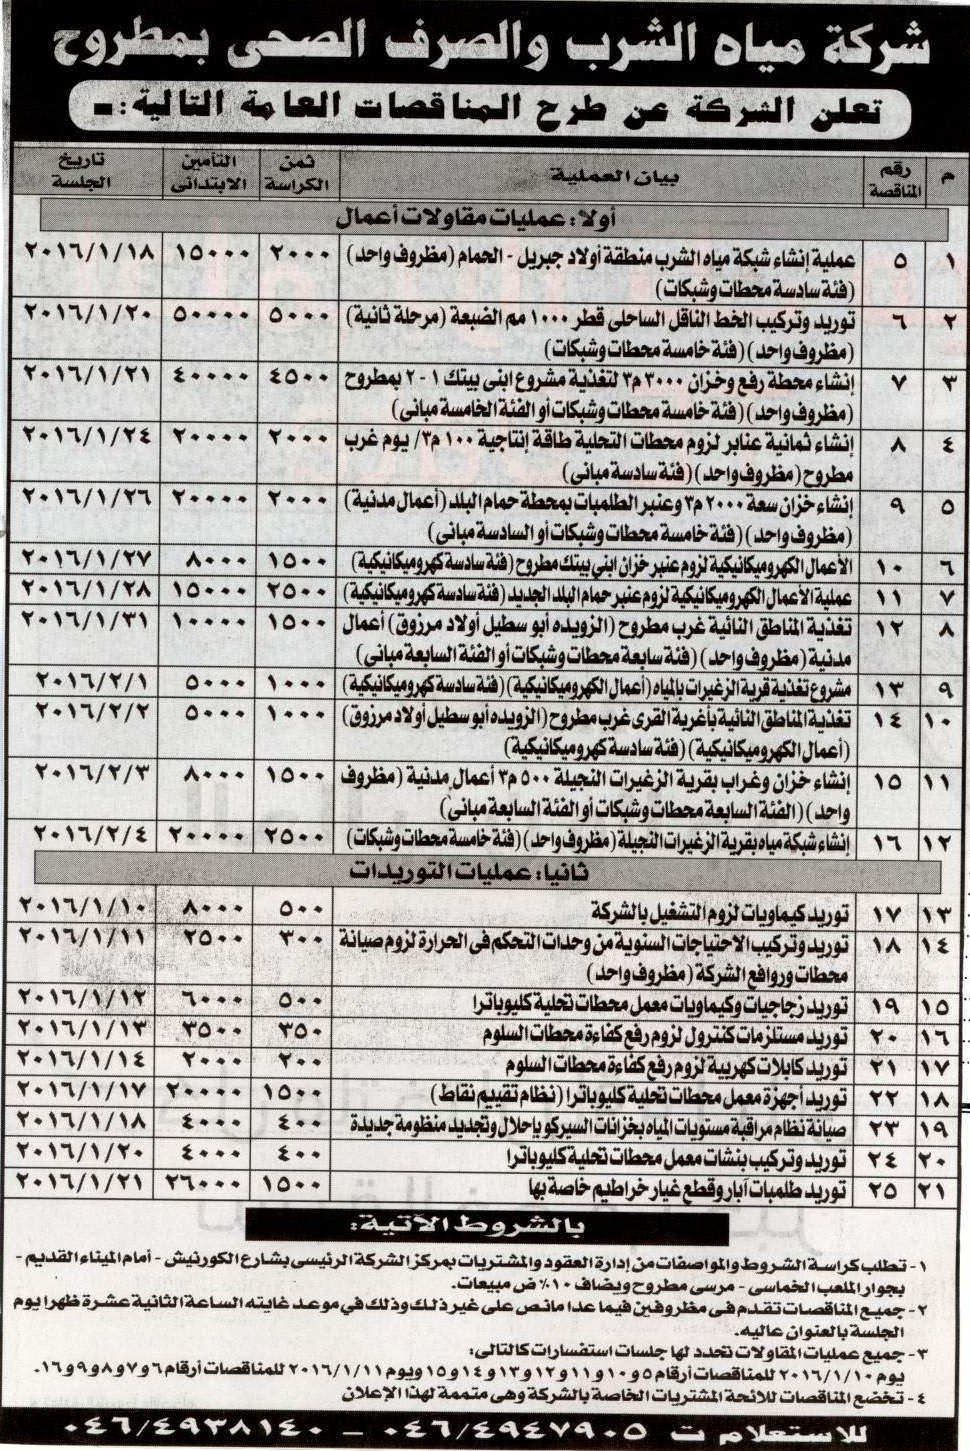 شركة مياه الشرب والصرف الصحى بمطروح
تعلن الشركة عن طرح المناقصات العامة التالية:-
م رقم المناقصة بيان العملية ثمن الكراسة التأمين الابتدائى تاريخ الجلسة
أولا: عمليات مقاولات أعمال
١ ٥ عملية إنشاء شبكة مياه الشرب منطقة أولاد جبريل - الحمام (مظروف واحد) ٢٠٠٠ ١٥٠٠٠ ٢٠١٦/١/١٨
(فئة سادسة محطات وشبكات)
٢ ٦ توريد وتركيب الخط الناقل الساحلى قطر ١٠٠٠ مم الضبعة (مرحلة ثانية) ٥٠٠٠ ٥٠٠٠٠ ٢٠١٦/١/٢٠
(مظروف واحد) (فئة خامسة محطات وشبكات)
٣ ٧ إنشاء محطة رفع وخزان ٣٠٠٠ م٣ لتغذية مشروع ابنى بيتك ١-٢ بمطروح ٤٥٠٠ ٤٠٠٠٠ ٢٠١٦/١/٢١
(مظروف واحد) (فئة خامسة محطات وشبكات أو الفئة الخامسة مبانى)
٤ ٨ إنشاء ثمانية عنابر لزوم محطات التحلية طاقة إنتاجية ١٠٠ م٣/ يوم غرب ٢٠٠٠ ٢٠٠٠٠ ٢٠١٦/١/٢٤
مطروح (مظروف واحد) (فئة سادسة مبانى)
٥ ٩ إنشاء خزان سعة ٢٠٠٠ م٣ وعنبر الطلمبات بمحطة حمام البلد (أعمال مدنية) ٢٠٠٠ ٢٠٠٠٠ ٢٠١٦/١/٢٦
(مظروف واحد) (فئة خامسة محطات وشبكات أو السادسة مبانى)
٦ ١٠ الأعمال الكهروميكانيكية لزوم عنبر خزان ابنى بيتك مطروح (فئة سادسة كهروميكانيكية) ١٥٠٠ ٨٠٠٠ ٢٠١٦/١/٢٧
٧ ١١ عملية الأعمال الكهروميكانيكية لزوم عنبر حمام البلد الجديد (فئة سادسة كهروميكانيكية) ٢٥٠٠ ١٥٠٠٠ ٢٠١٦/١/٢٨
٨ ١٢ تغذية المناطق النائية غرب مطروح (الزويده أبو سطيل أولاد مرزوق) أعمال ١٥٠٠ ١٠٠٠٠ ٢٠١٦/١/٣١
مدنية (مظروف واحد) (فئة سابعة محطات وشبكات أو الفئة السابعة مبانى)
٩ ١٣ مشروع تغذية قرية الزغيرات بالمياه (أعمال الكهروميكانيكية) (فئة سادسة كهروميكانيكية) ١٠٠٠ ٥٠٠٠ ٢٠١٦/٢/١
١٠ ١٤ تغذية المناطق النائية بأغربة القرى غرب مطروح (الزويده أبو سطيل أولاد مرزوق) ١٠٠٠ ٥٠٠٠ ٢٠١٦/٢/٢
(أعمال الكهروميكانيكية) (فئة سادسة كهروميكانيكية)
١١ ١٥ إنشاء خزان وغراب بقرية الزغيرات النجيلة ٥٠٠ م٣ أعمال مدنية (مظروف ١٥٠٠ ٨٠٠٠ ٢٠١٦/٢/٣
واحد) (الفئة السابعة محطات وشبكات أو الفئة السابعة مبانى)
١٢ ١٦ إنشاء شبكة مياه بقرية الزغيرات النجيلة (مظروف واحد) (فئة خامسة محطات وشبكات) ٢٥٠٠ ٢٠٠٠٠ ٢٠١٦/٢/٤
ثانيا: عمليات التوريدات
١٣ ١٧ توريد كيماويات لزوم التشغيل بالشركة ٥٠٠ ٨٠٠٠ ٢٠١٦/١/١٠
١٤ ١٨ توريد وتركيب الاحتياجات السنوية من وحدات التحكم فى الحرارة لزوم صيانة ٣٠٠ ٢٥٠٠ ٢٠١٦/١/١١
محطات وروافع الشركة (مظروف واحد)
١٥ ١٩ توريد زجاجيات وكيماويات معمل محطات تحلية كليوباترا ٥٠٠ ٦٠٠٠ ٢٠١٦/١/١٢
١٦ ٢٠ توريد مستلزمات كنترول لزوم رفع كفاءة محطات السلوم ٣٥٠ ٣٥٠٠ ٢٠١٦/١/١٣
١٧ ٢١ توريد كابلات كهربية لزوم رفع كفاءة محطات السلوم ٢٠٠ ٢٠٠٠ ٢٠١٦/١/١٤
١٨ ٢٢ توريد أجهزة معمل محطات تحلية كليوباترا (نظام تقييم نقاط) ١٥٠٠ ٢٠٠٠٠ ٢٠١٦/١/١٧
١٩ ٢٣ صيانة نظام مراقبة مستويات المياه بخزانات السيركو بإحلال وتجديد منظومة جديدة ٤٠٠ ٤٠٠٠ ٢٠١٦/١/١٨
٢٠ ٢٤ توريد وتركيب بنشات معمل محطات تحلية كليوباترا ٤٠٠ ٤٠٠٠ ٢٠١٦/١/٢٠
٢١ ٢٥ توريد طلمبات آبار وقطع غيار خراطيم خاصة بها ١٥٠٠ ٢٦٠٠٠ ٢٠١٦/١/٢١
بالشروط الآتية:
١- تطلب كراسة الشروط والمواصفات من إدارة العقود والمشتريات بمركز الشركة الرئيسى بشارع الكورنيش - أمام الميناء القديم -
بجوار الملعب الخماسى - مرسى مطروح ويضاف ١٠٪ ض مبيعات.
٢- جميع المناقصات تقدم فى مظروفين فيما عدا مانص على غير ذلك وذلك في موعد غايته الساعة الثانية عشرة ظهرا يوم
الجلسة بالعنوان عاليه.
٣- جميع عمليات المقاولات تحدد لها جلسات استفسارات كالتالى:
يوم ٢٠١٦/١/١٠ للمناقصات أرقام ٥ و١٠ و١١ و١٢ و١٣ و١٤ و١٥ ويوم ٢٠١٦/١/١١ للمناقصات أرقام ٦ و٧ و٨ و٩ و١٦.
٤- تخضع المناقصات للائحة المشتريات الخاصة بالشركة وهى متممة لهذا الإعلان
للاستعلام ت ٠٤٦/٤٩٤٧٩٠٥ - ٠٤٦/٤٩٣٨١٤٠